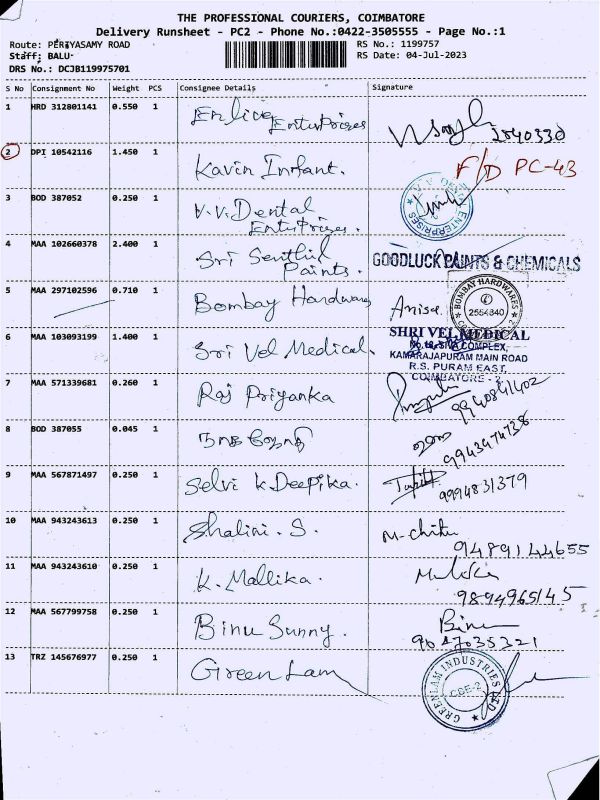 THE PROFESSIONAL COURIERS, COIMBATORE
Delivery Runsheet - PC2 - Phone No.:0422-3505555 - Page No.:1
Route: PERIYASAMY ROAD RS No.: 1199757
Staff: BALU RS Date: 04-Jul-2023
DRS No.: DCJB119975701
S No Consignment No Weight PCS Consignee Details Signature
1 HRD 312801141 0.550 1 Enlive Enterprises 2540330
2 DPI 10542116 1.450 1 Kavin Infant. F/D PC-43
3 BOD 387052 0.250 1 V.V. Dental Enterprises. V.V. DENTAL ENTERPRISES
4 MAA 102660378 2.400 1 Sri Senthil Paints. GOODLUCK PAINTS & CHEMICALS
5 MAA 297102596 0.710 1 Bombay Hardware Anisa BOMBAY HARDWARES 2554840
6 MAA 103093199 1.400 1 Sri Vel Medical. SHRI VEL MEDICAL
COMPLEX,
KAMARAJAPURAM MAIN ROAD
R.S. PURAM EAST,
COIMBATORE - 2
7 MAA 571339681 0.260 1 Raj Priyanka 9940841402
8 BOD 387055 0.045 1 9943474738
9 MAA 567871497 0.250 1 Selvi K Deepika. 9994831379
10 MAA 943243613 0.250 1 Shalini. S. M-chitu 9489144655
11 MAA 943243610 0.250 1 K. Mallika. 9894965145
12 MAA 567799758 0.250 1 Binu Sunny. Binu 9047035321
13 TRZ 145676977 0.250 1 Green Lam GREENLAM INDUSTRIES LTD CBE-2